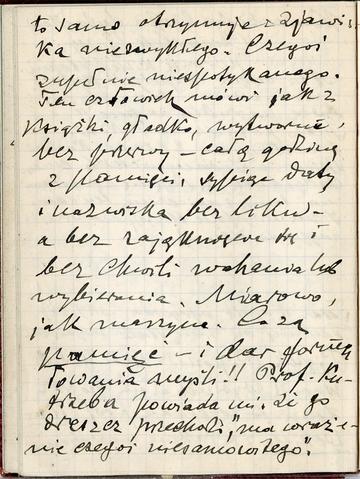 to samo otrzymuje zjawis-
ka niezwykłego. Czegoś
zupełnie niespotykanego.
Ten człowiek mówi jak z
książki, gładko, wytwornie,
bez przerwy – całą godzinę
z pamięci, sypiąc daty
i nazwiska bez liku –
a bez zająknięcia się i
bez chwili wahania lub
wybierania. Miarowo,
jak maszyna. Co za
pamięć – i dar formu-
łowania myśli!! Prof. Ku-
trzeba powiada mi, że go
dreszcz przechodzi, "ma wraże-
nie czegoś niesamowitego".